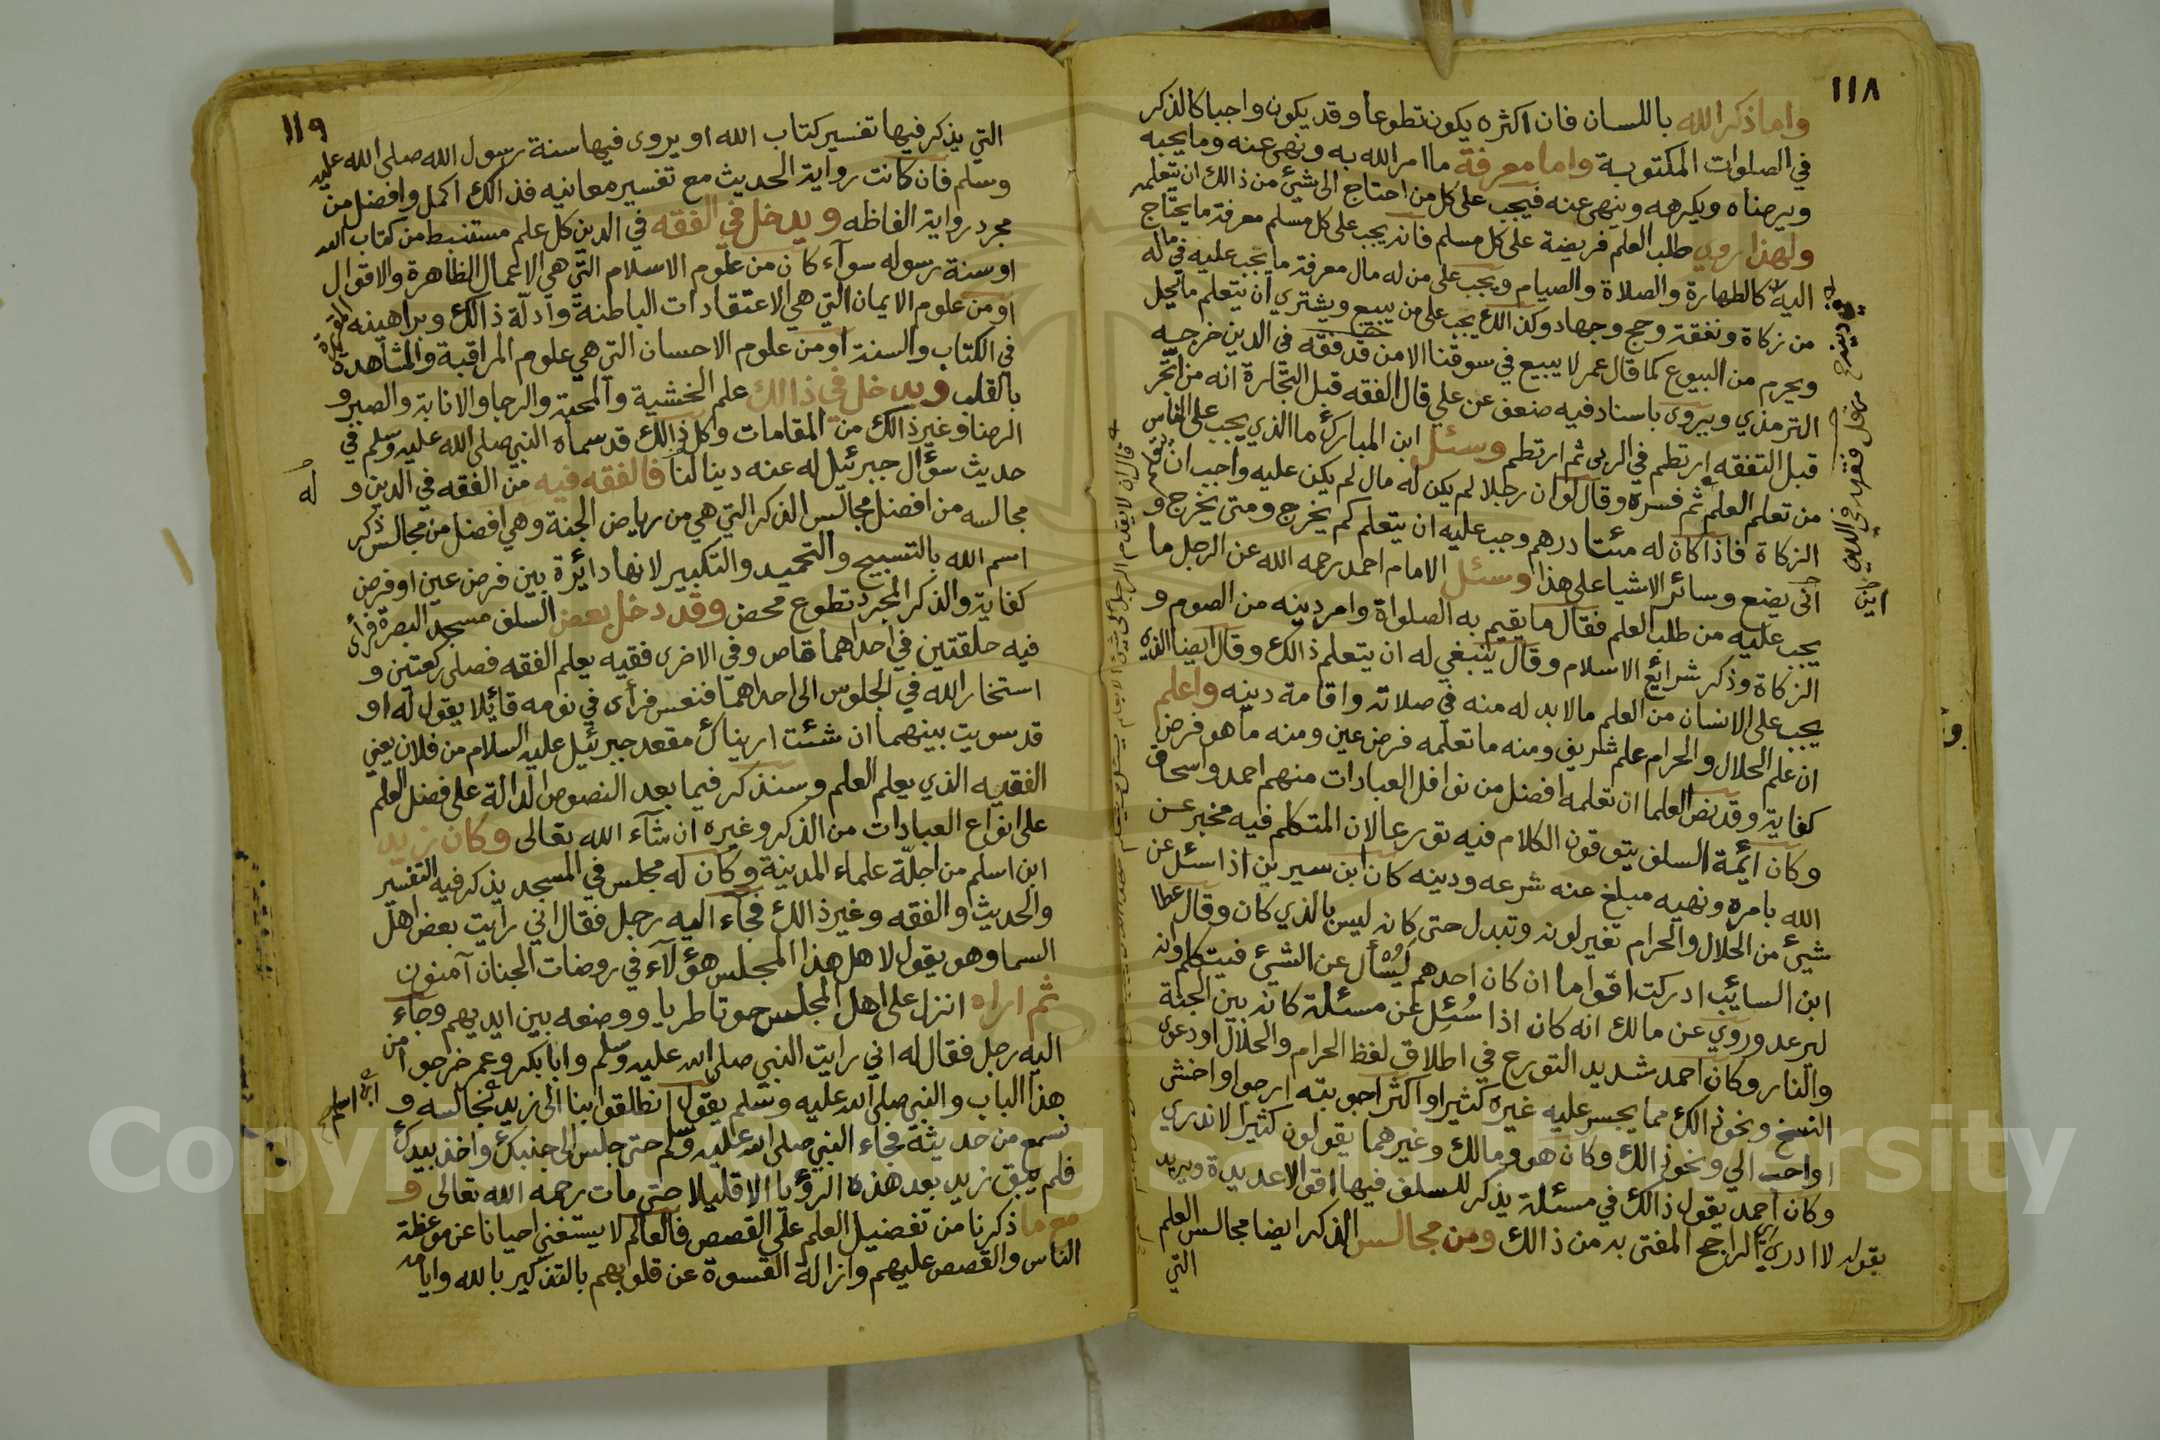 ١١٨
واما ذكر الله باللسان فان اكثره يكون تطوعا وقد يكون واجبا كالذكر
في الصلوات المكتوبة واما معرفة ما امر الله به ونهى عنه وما يحبه
ويرضاه ويكرهه وينهى عنه فيجب على كل من احتاج الى شيئ من ذالك ان يتعلمه
ولهذا روي طلب العلم فريضة على كل مسلم فانه يجب على كل مسلم معرفة ما يحتاج
اليه كالطهارة والصلاة والصيام ويجب على من له مال معرفة ما يجب عليه في ماله
من زكاة ونفقة وحج وجهاد وكذالك يجب على من يبيع ويشتري ان يتعلم ما يحل
ويحرم من البيوع كما قال عمر لا يبيع في سوقنا الا من قد فقه في الدين خرجه
الترمذي ويروى باسناد فيه ضعف عن علي قال الفقه قبل التجارة انه من اتجر
قبل التفقه ارتطم في الربى ثم ارتطم وسئل ابن المبارك ما الذي يجب على الناس
من تعلم العلم ثم فسره وقال لو ان رجلا لم يكن له مال لم يكن عليه واجب ان يتعلم
الزكاة فاذا كان له مئتا درهم وجب عليه ان يتعلم كم يخرج ومتى يخرج و
اين يضع وسائر الاشيا على هذا وسئل الامام احمد رحمه الله عن الرجل ما
يجب عليه من طلب العلم فقال ما يقيم به الصلواة وامر دينه من الصوم و
الزكاة وذكر شرائع الاسلام وقال ينبغي له ان يتعلم ذالك وقال ايضا الذي
يجب على الانسان من العلم ما لا بد له منه في صلاته واقامة دينه واعلم
ان علم الحلال والحرام علم شريف ومنه ما تعلمه فرض عين ومنه ما هو فرض
كفاية وقد نص العلما ان تعلمه افضل من نوافل العبادات منهم احمد واسحاق
وكان ائمة السلف يتوقون الكلام فيه تورعا لان المتكلم فيه مخبر عن
الله بامره ونهيه مبلغ عنه شرعه ودينه كان ابن سيرين اذا سئل عن
شيئ من الحلال والحرام تغير لونه وتبدل حتى كانه ليس بالذي كان وقال عطا
ابن السائب ادركت اقواما ان كان احدهم ليسأل عن الشيئ فيتكلم وانه
ليرعد وروي عن مالك انه كان اذا سئل عن مسئلة كانه بين الجنة
والنار وكان احمد شديد التورع في اطلاق لفظ الحرام والحلال او دعوى
النسخ ونحو ذالك مما يجسر عليه غيره كثيرا واكثر اجوبته ارجوا واخشى
او احب الي ونحو ذالك وكان هو ومالك وغيرهما يقولون كثيرا لا ندري
وكان احمد يقول ذالك في مسئلة يذكر للسلف فيها اقوالا عديدة ويريد
بقوله لا ادري الراجح المفتى به من ذالك ومن مجالس الذكر ايضا مجالس العلم
التي
١١٩
التي يذكر فيها تفسير كتاب الله او يروى فيها سنة رسول الله صلى الله عليه
وسلم فان كانت رواية الحديث مع تفسير معانيه فذالك اكمل وافضل من
مجرد رواية الفاظه ويدخل في الفقه في الدين كل علم مستنبط من كتاب الله
او سنة رسوله سوآء كان من علوم الاسلام التي هي الاعمال الظاهرة والاقوال
او من علوم الايمان التي هي الاعتقادات الباطنة وادلة ذالك وبراهينه المقررة
في الكتاب والسنة او من علوم الاحسان التي هي علوم المراقبة والمشاهدة
بالقلب ويدخل في ذالك علم الخشية والمحبة والرجا والانابة والصبر و
الرضا وغير ذالك من المقامات وكل ذالك قد سماه النبي صلى الله عليه وسلم في
حديث سؤال جبرئيل له عنه دينا لنا فالفقه فيه من الفقه في الدين و
له
مجالسه من افضل مجالس الذكر التي هي من رياض الجنة وهي افضل من مجالس ذكر
اسم الله بالتسبيح والتحميد والتكبير لانها دائرة بين فرض عين او فرض
كفاية والذكر المجرد تطوع محض وقد دخل بعض السلف مسجد البصرة فرأى
فيه حلقتين في احداهما قاص وفي الاخرى فقيه يعلم الفقه فصلى ركعتين و
استخار الله في الجلوس الى احداهما فنعس فرأى في نومه قائلا يقول له او
قد سويت بينهما ان شئت اريناك مقعد جبرئيل عليه السلام من فلان يعني
الفقيه الذي يعلم العلم وسنذكر فيما بعد النصوص الدالة على فضل العلم
على انواع العبادات من الذكر وغيره ان شآء الله تعالى وكان زيد
ابن اسلم من اجلة علماء المدينة وكان له مجلس في المسجد يذكر فيه التفسير
والحديث والفقه وغير ذالك فجآء اليه رجل فقال اني رايت بعض اهل
السما وهو يقول لاهل هذا المجلس هؤلآء في روضات الجنان آمنون
ثم اراه انزل على اهل المجلس حوتا طريا ووضعه بين ايديهم وجاء
اليه رجل فقال له اني رايت النبي صلى الله عليه وسلم وابا بكر وعمر خرجوا من
هذا الباب والنبي صلى الله عليه وسلم يقول انطلقوا بنا الى زيد نجالسه و
ابن اسلم صح
نسمع من حديثه فجاء النبي صلى الله عليه وسلم حتى جلس الى جنبك واخذ بيدك
فلم يبق زيد بعد هذه الرؤيا الا قليلا حتى مات رحمه الله تعالى و
مع ما ذكرنا من تفضيل العلم على القصص فالعالم لا يستغني احيانا عن موعظة
الناس والقصص عليهم وازالة القسوة عن قلوبهم بالتذكير بالله وايامه
Copyright © King Saud University